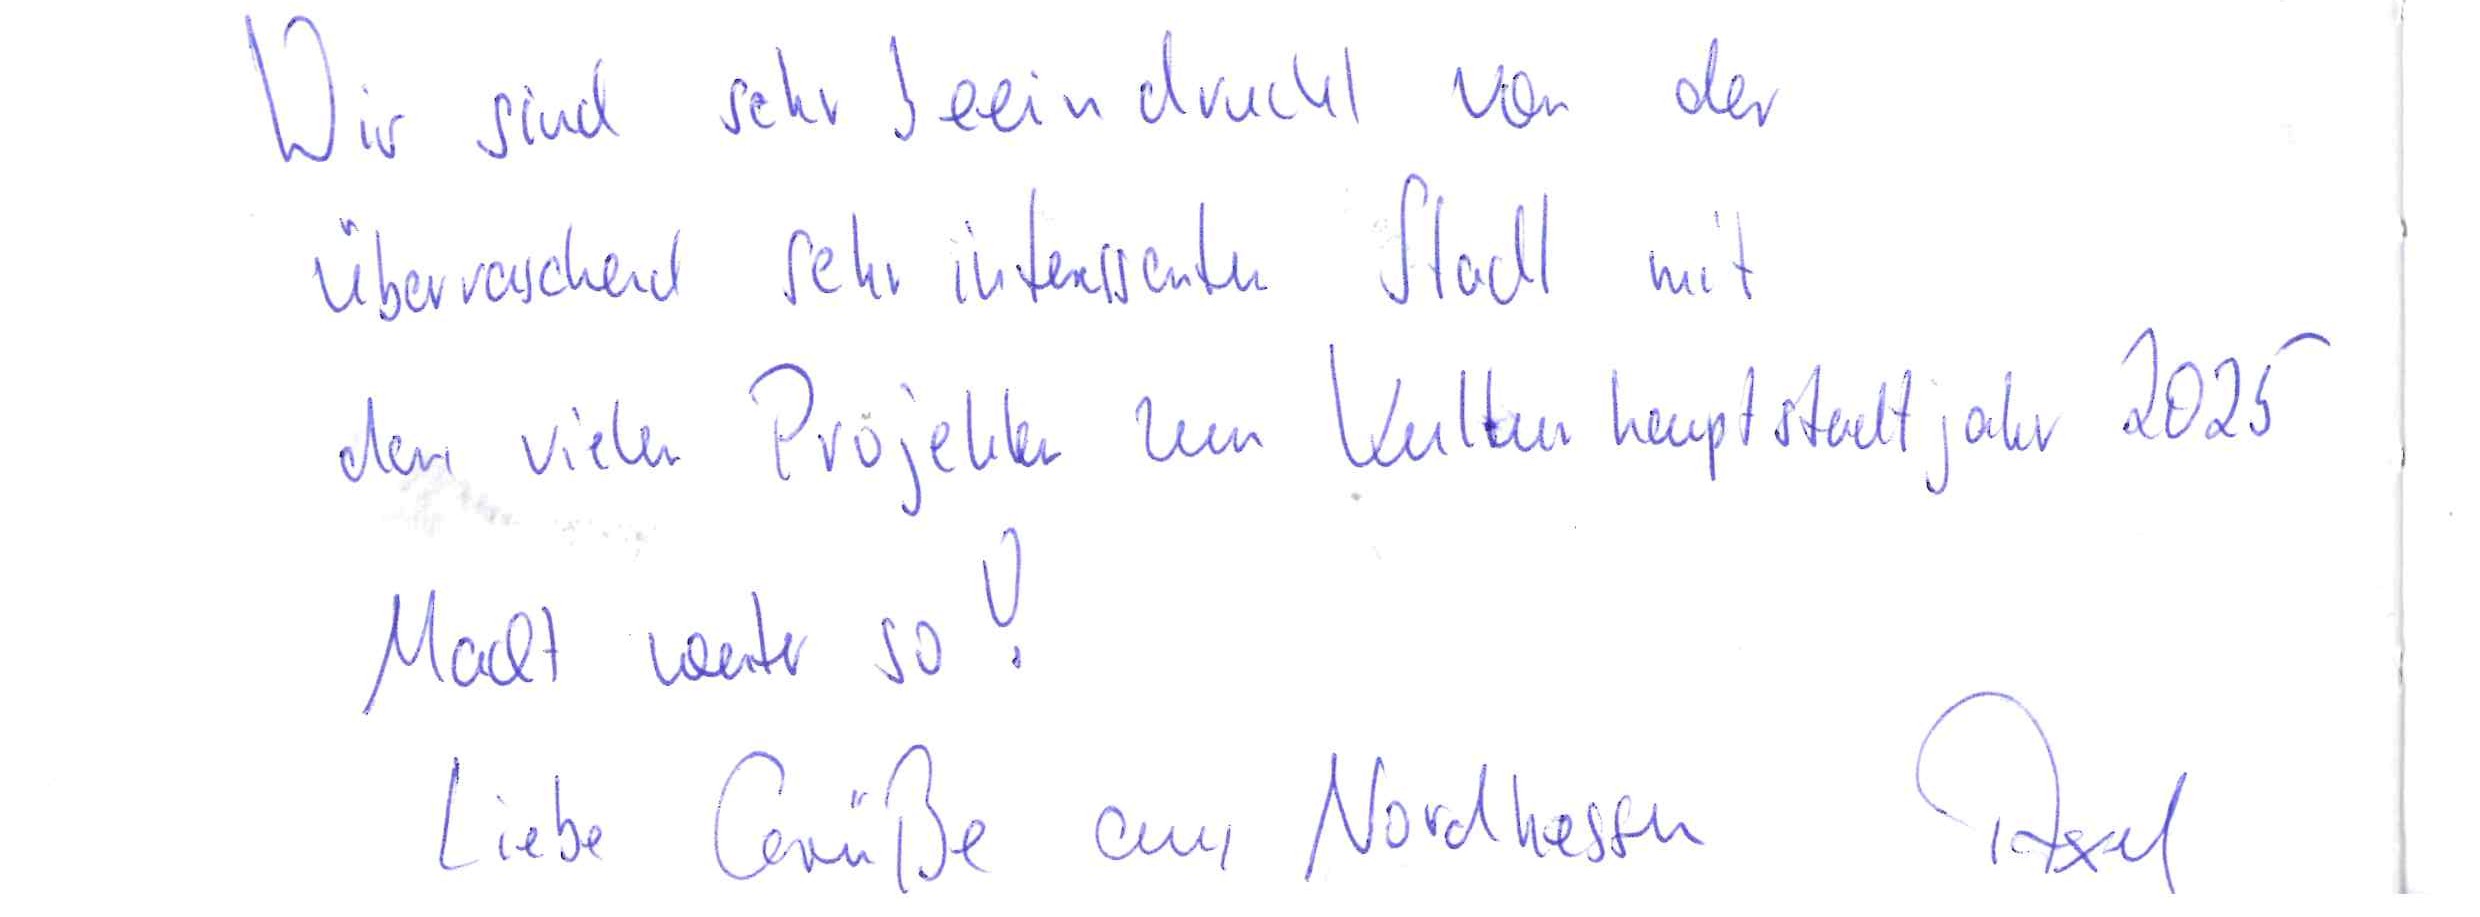 Wir sind sehr beeindruckt von der
überraschend sehr interessanten Stadt mit
den vielen Projekten zum Kulturhauptstadtjahr 2025
Macht weiter so!
Liebe Grüße aus Nordhessen Axel